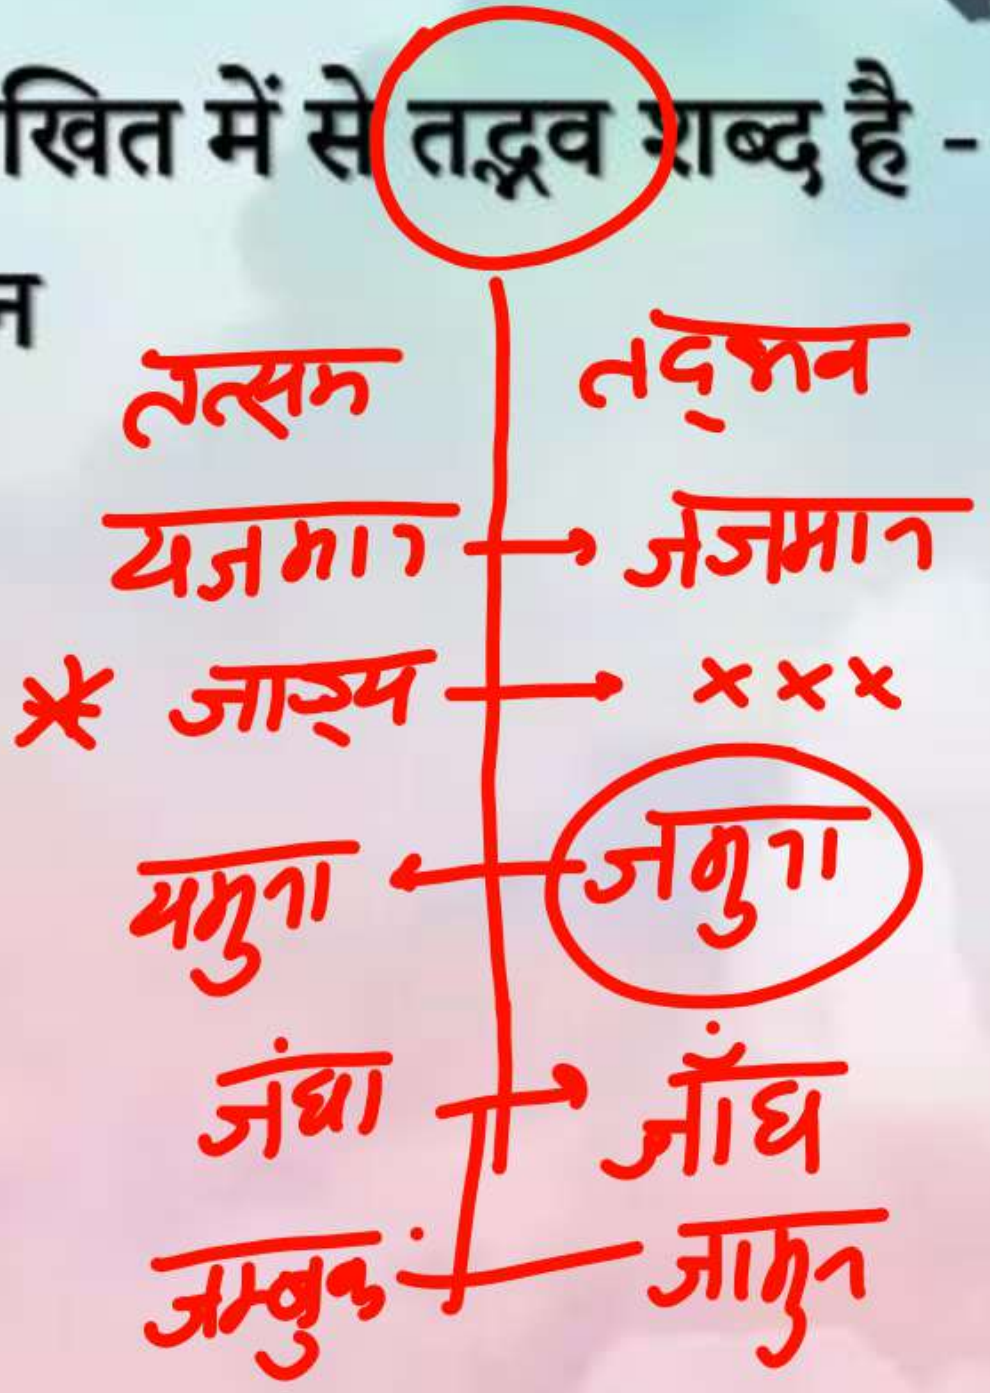 खित में से तद्भव शब्द है -
न
तत्सम तद्भव
यजमान → जजमान
* जाड्य → × × ×
यमुना ← जमुना
जंघा → जाँघ
जम्बुक जामुन